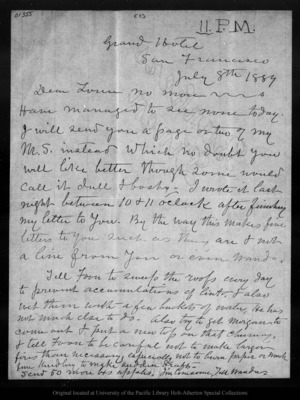 01355
11 P.M.
Grand Hotel
San Francisco
July 8th 1889
Dear Louie no more
Have managed to see none today.
I will send you a page or two of my
M.S. instead which no doubt you
will like better though some would
call it dull & boshy - I wrote it last
night between 10 & 11 oclock after finishing
my letter to you. By the way this makes five
letters to you such as they are & not
a line from you or even Wanda -
Tell Foon to sweep the roofs every day
to prevent accumulations of & also
wet them with a few buckets of water, He has
not much else to do. Also try to get Morgan to
come out & put a new top on that chimney,
& tell Foon to be careful not to make larger
fires than necessary, especially not to burn paper or
fine kindling to make sudden
Send 50 more bxs apples.
Image used courtesy of the University of the Pacific Library Holt-Atherton Special Collections